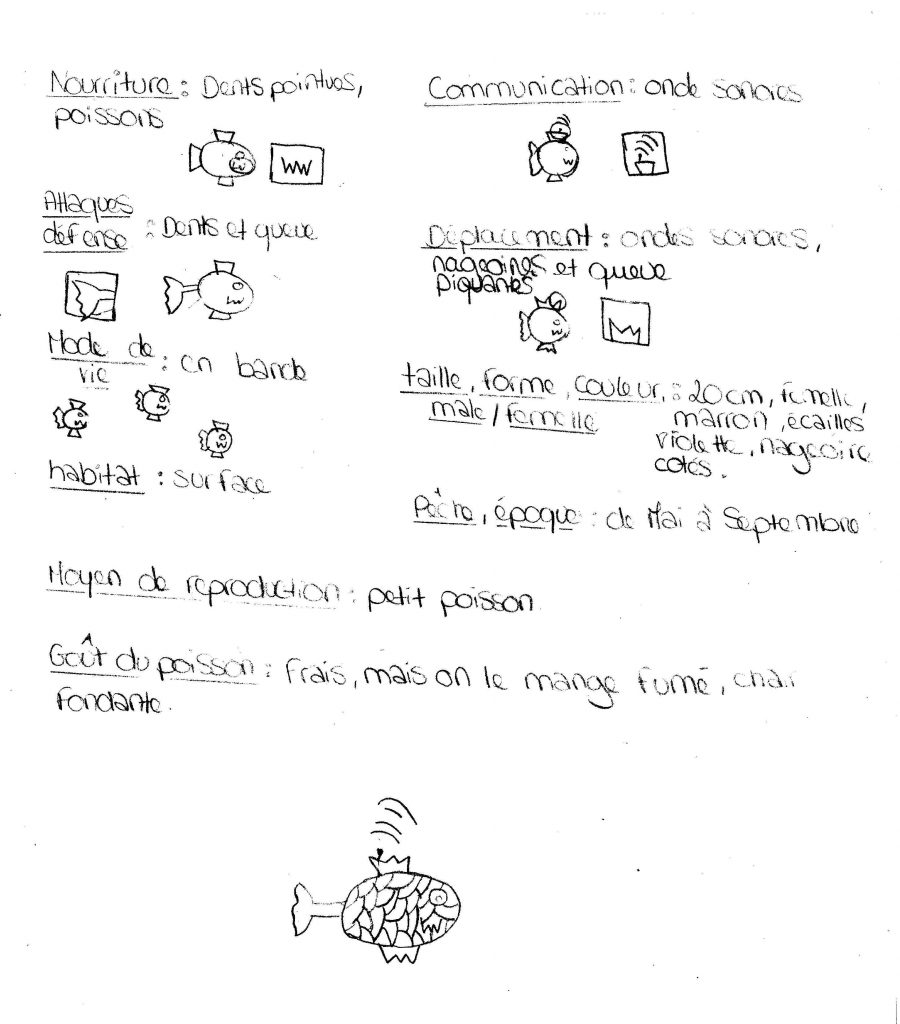 Nourriture : Dents pointues,
poissons
Attaques
défense : Dents et queue
Mode de : en bande
vie
habitat : surface
Communication : onde sonores
Déplacement : ondes sonores,
nageoires et queue
piquantes
taille, forme, couleur, : 20cm, femelle,
male / femelle marron, écailles
violette, nageoire
cotés.
Pêche, époque : de Mai à Septembre
Moyen de reproduction : petit poisson
Goût du poisson : frais, mais on le mange fumé, chair
fondante.